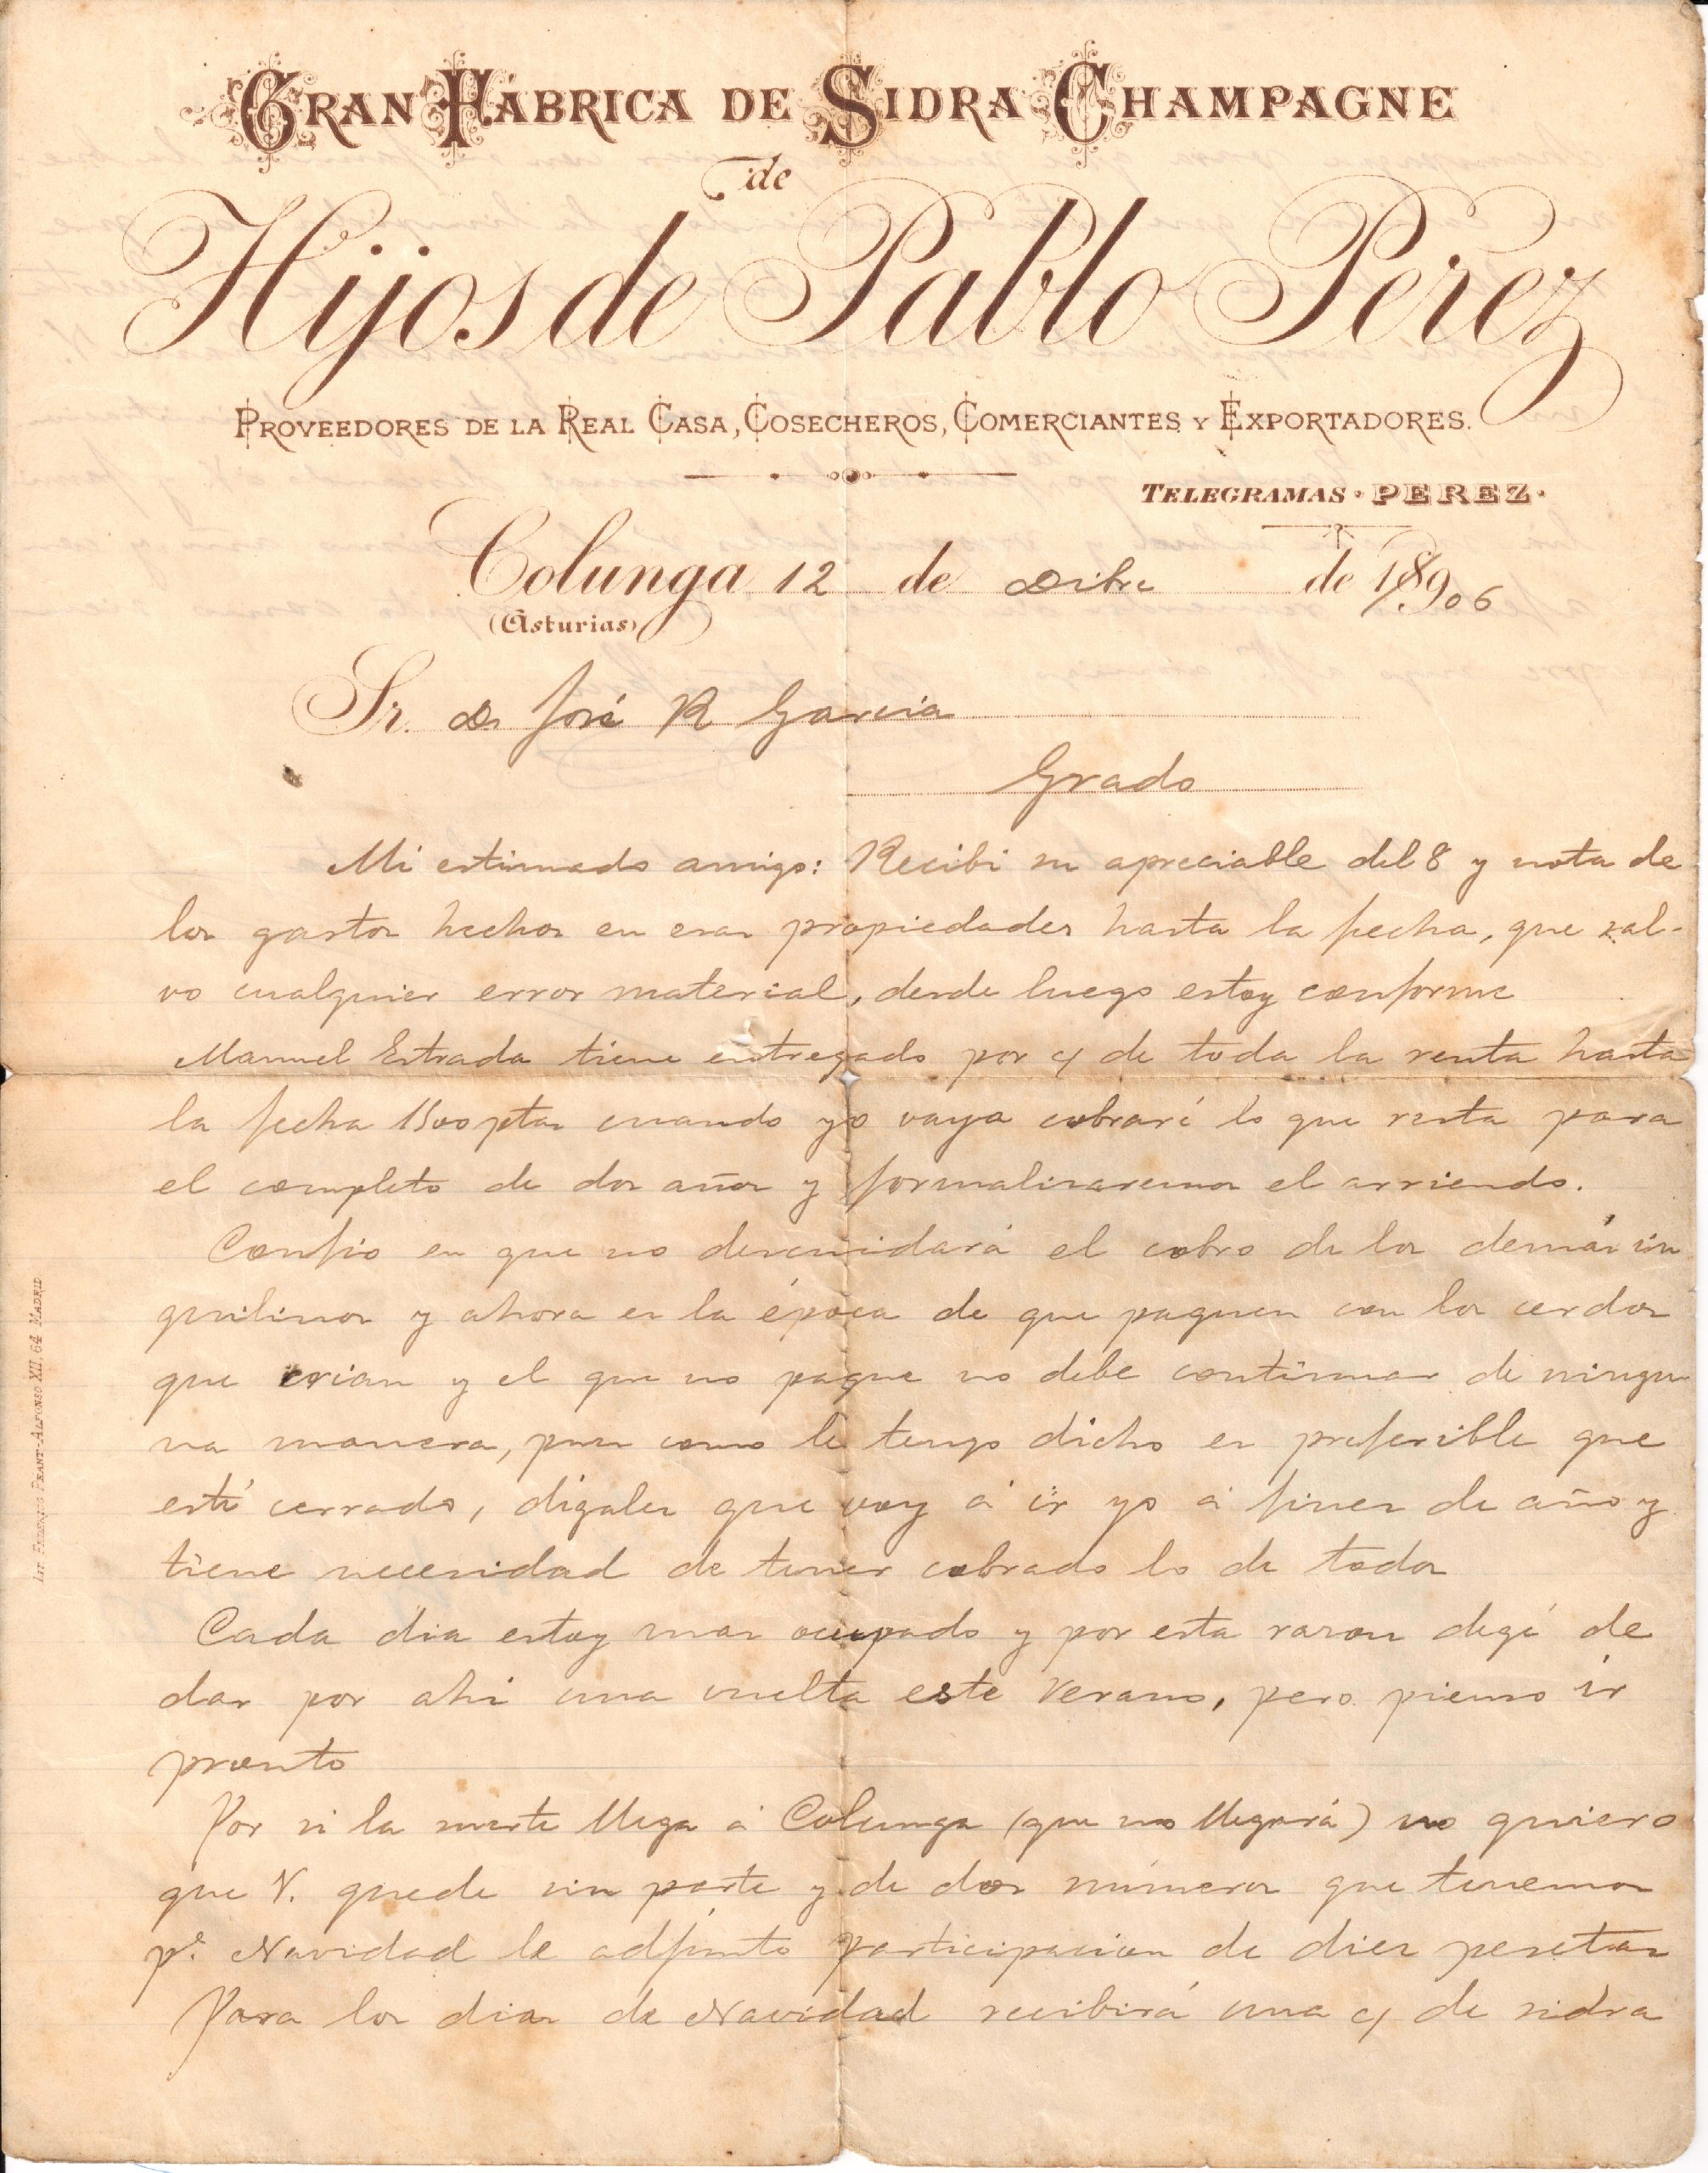 GRAN FÁBRICA DE SIDRA CHAMPAGNE
de
Hijos de Pablo Perez
PROVEEDORES DE LA REAL CASA, COSECHEROS, COMERCIANTES Y EXPORTADORES.
TELEGRAMAS · PEREZ ·
Colunga 12 de Dibre de 1906
(Asturias)
Sr. Dn José R Garcia
Grado
Mi estimado amigo: Recibi su apreciable del 8 y nota de
los gastos hechos en esas propiedades hasta la fecha, que sal-
vo cualquier error material, desde luego estoy conforme
Manuel Estrada tiene entregado por c/ de toda la renta hasta
la fecha 1500 ptas cuando yo vaya cobraré lo que resta para
el completo de dos años y formalizaremos el arriendo.
Confio en que no descuidará el cobro de los demás in
quilinos y ahora es la época de que paguen con los cerdos
que crian y el que no pague no debe continuar de ningu
na manera, pues como le tengo dicho es preferible que
esté cerrado, digales que voy á ir yo á fines de año y
tiene necesidad de tener cobrado lo de todos
Cada dia estoy mas ocupado y por esta razon degé de
dar por ahi una vuelta este verano, pero pienso ir
pronto
Por si la suerte llega á Colunga (que no llegará) no quiero
que V. quede sin parte y de dos números que tenemos
pª Navidad le adjunto participacion de diez pesetas
Para los dias de Navidad recibirá una c/ de sidra
LIT. FEDERICO PEANT-ALFONSO XII, 64 MADRID